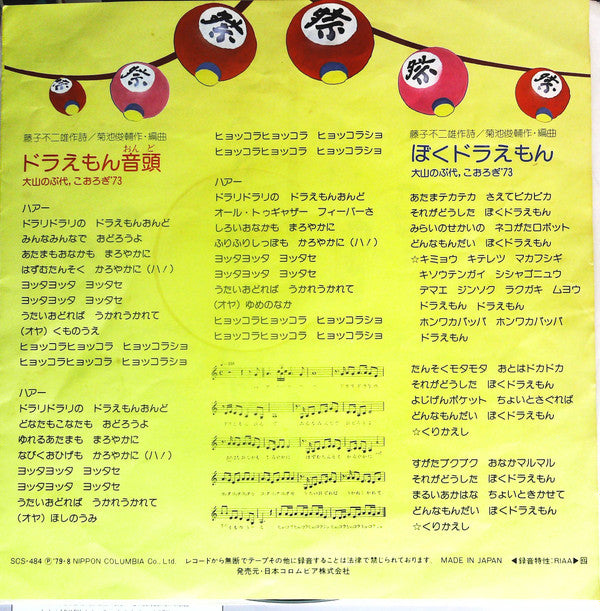 祭
祭
祭
祭
祭
祭
藤子不二雄作詩／菊池俊輔作・編曲
おんど
ドラえもん音頭
大山のぶ代,こおろぎ'73
ハアー
ドラリドラリの ドラえもんおんど
みんなみんなで おどろうよ
あたまもおなかも まろやかに
はずむたんそく かろやかに(ハ!)
ヨッタヨッタ ヨッタセ
ヨッタヨッタ ヨッタセ
うたいおどれば うかれうかれて
(オヤ)くものうえ
ヒョッコラヒョッコラ ヒョッコラショ
ヒョッコラヒョッコラ ヒョッコラショ
ハアー
ドラリドラリの ドラえもんおんど
どなたもこなたも おどろうよ
ゆれるあたまも まろやかに
なびくおひげも かろやかに(ハ!)
ヨッタヨッタ ヨッタセ
ヨッタヨッタ ヨッタセ
うたいおどれば うかれうかれて
(オヤ)ほしのうみ
ヒョッコラヒョッコラ ヒョッコラショ
ヒョッコラヒョッコラ ヒョッコラショ
ハアー
ドラリドラリの ドラえもんおんど
オール・トゥギャザー フィーバーさ
しろいおなかも まろやかに
ふりふりしっぽも かろやかに(ハ!)
ヨッタヨッタ ヨッタセ
ヨッタヨッタ ヨッタセ
うたいおどれば うかれうかれて
(オヤ)ゆめのなか
ヒョッコラヒョッコラ ヒョッコラショ
ヒョッコラヒョッコラ ヒョッコラショ
藤子不二雄作詩／菊池俊輔作・編曲
ぼくドラえもん
大山のぶ代,こおろぎ'73
あたまテカテカ さえてピカピカ
それがどうした ぼくドラえもん
みらいのせかいの ネコがたロボット
どんなもんだい ぼくドラえもん
☆キミョウ キテレツ マカフシギ
キソウテンガイ シシャゴニュウ
デマエ ジンソク ラクガキ ムヨウ
ドラえもん ドラえもん
ホンワカパッパ ホンワカパッパ
ドラえもん
たんそくモタモタ おとはドカドカ
それがどうした ぼくドラえもん
よじげんポケット ちょいとさぐれば
どんなもんだい ぼくドラえもん
☆くりかえし
すがたプクプク おなかマルマル
それがどうした ぼくドラえもん
まるいあかはな ちょいときかせて
どんなもんだい ぼくドラえもん
☆くりかえし
SCS-484 Ⓟ'79・8 NIPPON COLUMBIA Co., Ltd. レコードから無断でテープその他に録音することは法律で禁じられております。 MADE IN JAPAN ◀録音特性:RIAA▶
発売元・日本コロムビア株式会社